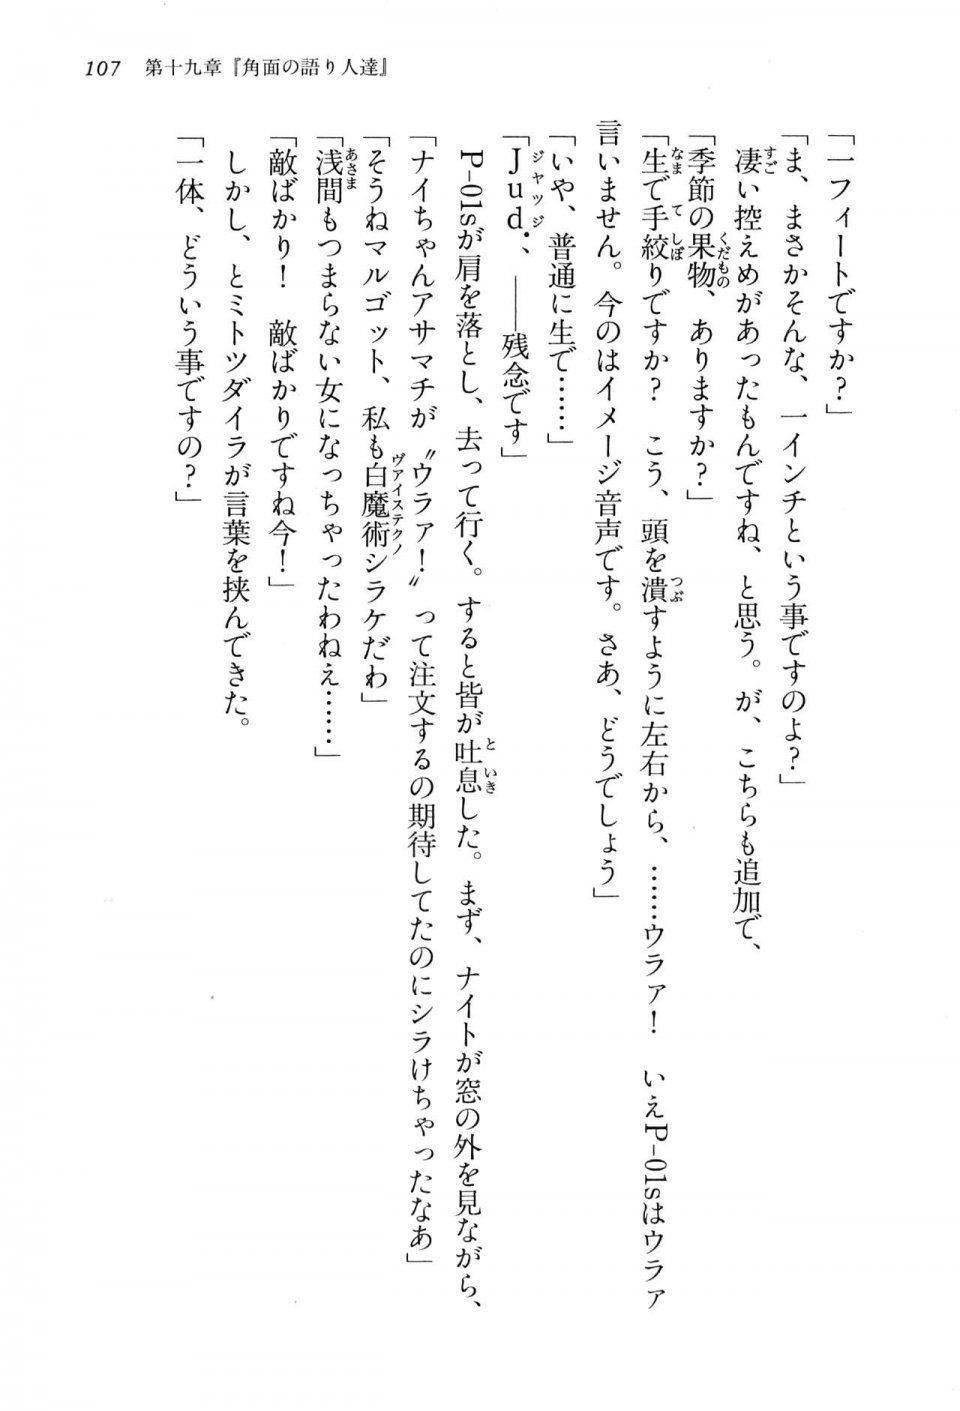 107 第十九章『角面の語り人達』
「一フィートですか？」
「ま、まさかそんな、一インチという事ですのよ？」
凄い控えめがあったもんですね、と思う。が、こちらも追加で、
「季節の果物、ありますか？」
「生で手絞りですか？　こう、頭を潰すように左右から、……ウラァ！　いえP-01sはウラァ
言いません。今のはイメージ音声です。さあ、どうでしょう」
「いや、普通に生で……」
「Jud.、――残念です」
P-01sが肩を落とし、去って行く。すると皆が吐息した。まず、ナイトが窓の外を見ながら、
「ナイちゃんアサマチが〝ウラァ！〟って注文するの期待してたのにシラけちゃったなあ」
「そうねマルゴット、私も白魔術シラケだわ」
「浅間もつまらない女になっちゃったわねぇ……」
「敵ばかり！　敵ばかりですね今！」
しかし、とミトツダイラが言葉を挟んできた。
「一体、どういう事ですの？」